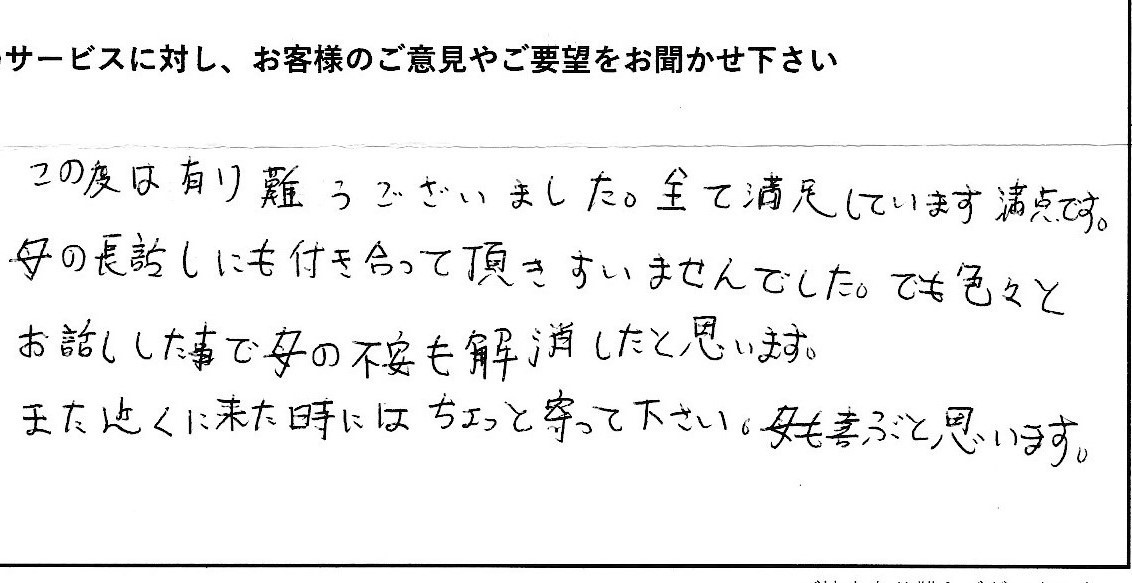 サービスに対し、お客様のご意見やご要望をお聞かせ下さい
この度は有り難うございました。全て満足しています満点です。
母の長話しにも付き合って頂きすいませんでした。でも色々と
お話しした事で母の不安も解消したと思います。
また近くに来た時にはちょっと寄って下さい。母も喜ぶと思います。